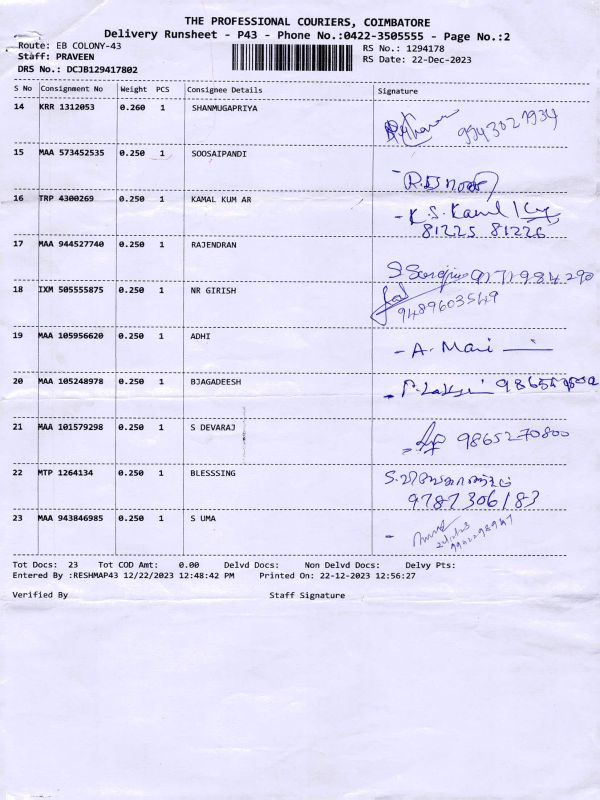 THE PROFESSIONAL COURIERS, COIMBATORE
Delivery Runsheet - P43 - Phone No.:0422-3505555 - Page No.:2
Route: EB COLONY-43 RS No.: 1294178
Staff: PRAVEEN RS Date: 22-Dec-2023
DRS No.: DCJB129417802
S No Consignment No Weight PCS Consignee Details Signature
14 KRR 1312053 0.260 1 SHANMUGAPRIYA
9943021934
15 MAA 573452535 0.250 1 SOOSAIPANDI
16 TRP 4300269 0.250 1 KAMAL KUM AR
- K.S. Kamal
81225 81226
17 MAA 944527740 0.250 1 RAJENDRAN
9171984290
18 IXM 505555875 0.250 1 NR GIRISH
9489603549
19 MAA 105956620 0.250 1 ADHI
- A. Mari
20 MAA 105248978 0.250 1 BJAGADEESH
21 MAA 101579298 0.250 1 S DEVARAJ
9865270800
22 MTP 1264134 0.250 1 BLESSSING
9787306183
23 MAA 943846985 0.250 1 S UMA
Tot Docs: 23 Tot COD Amt: 0.00 Delvd Docs: Non Delvd Docs: Delvy Pts:
Entered By :RESHMAP43 12/22/2023 12:48:42 PM Printed On: 22-12-2023 12:56:27
Verified By Staff Signature